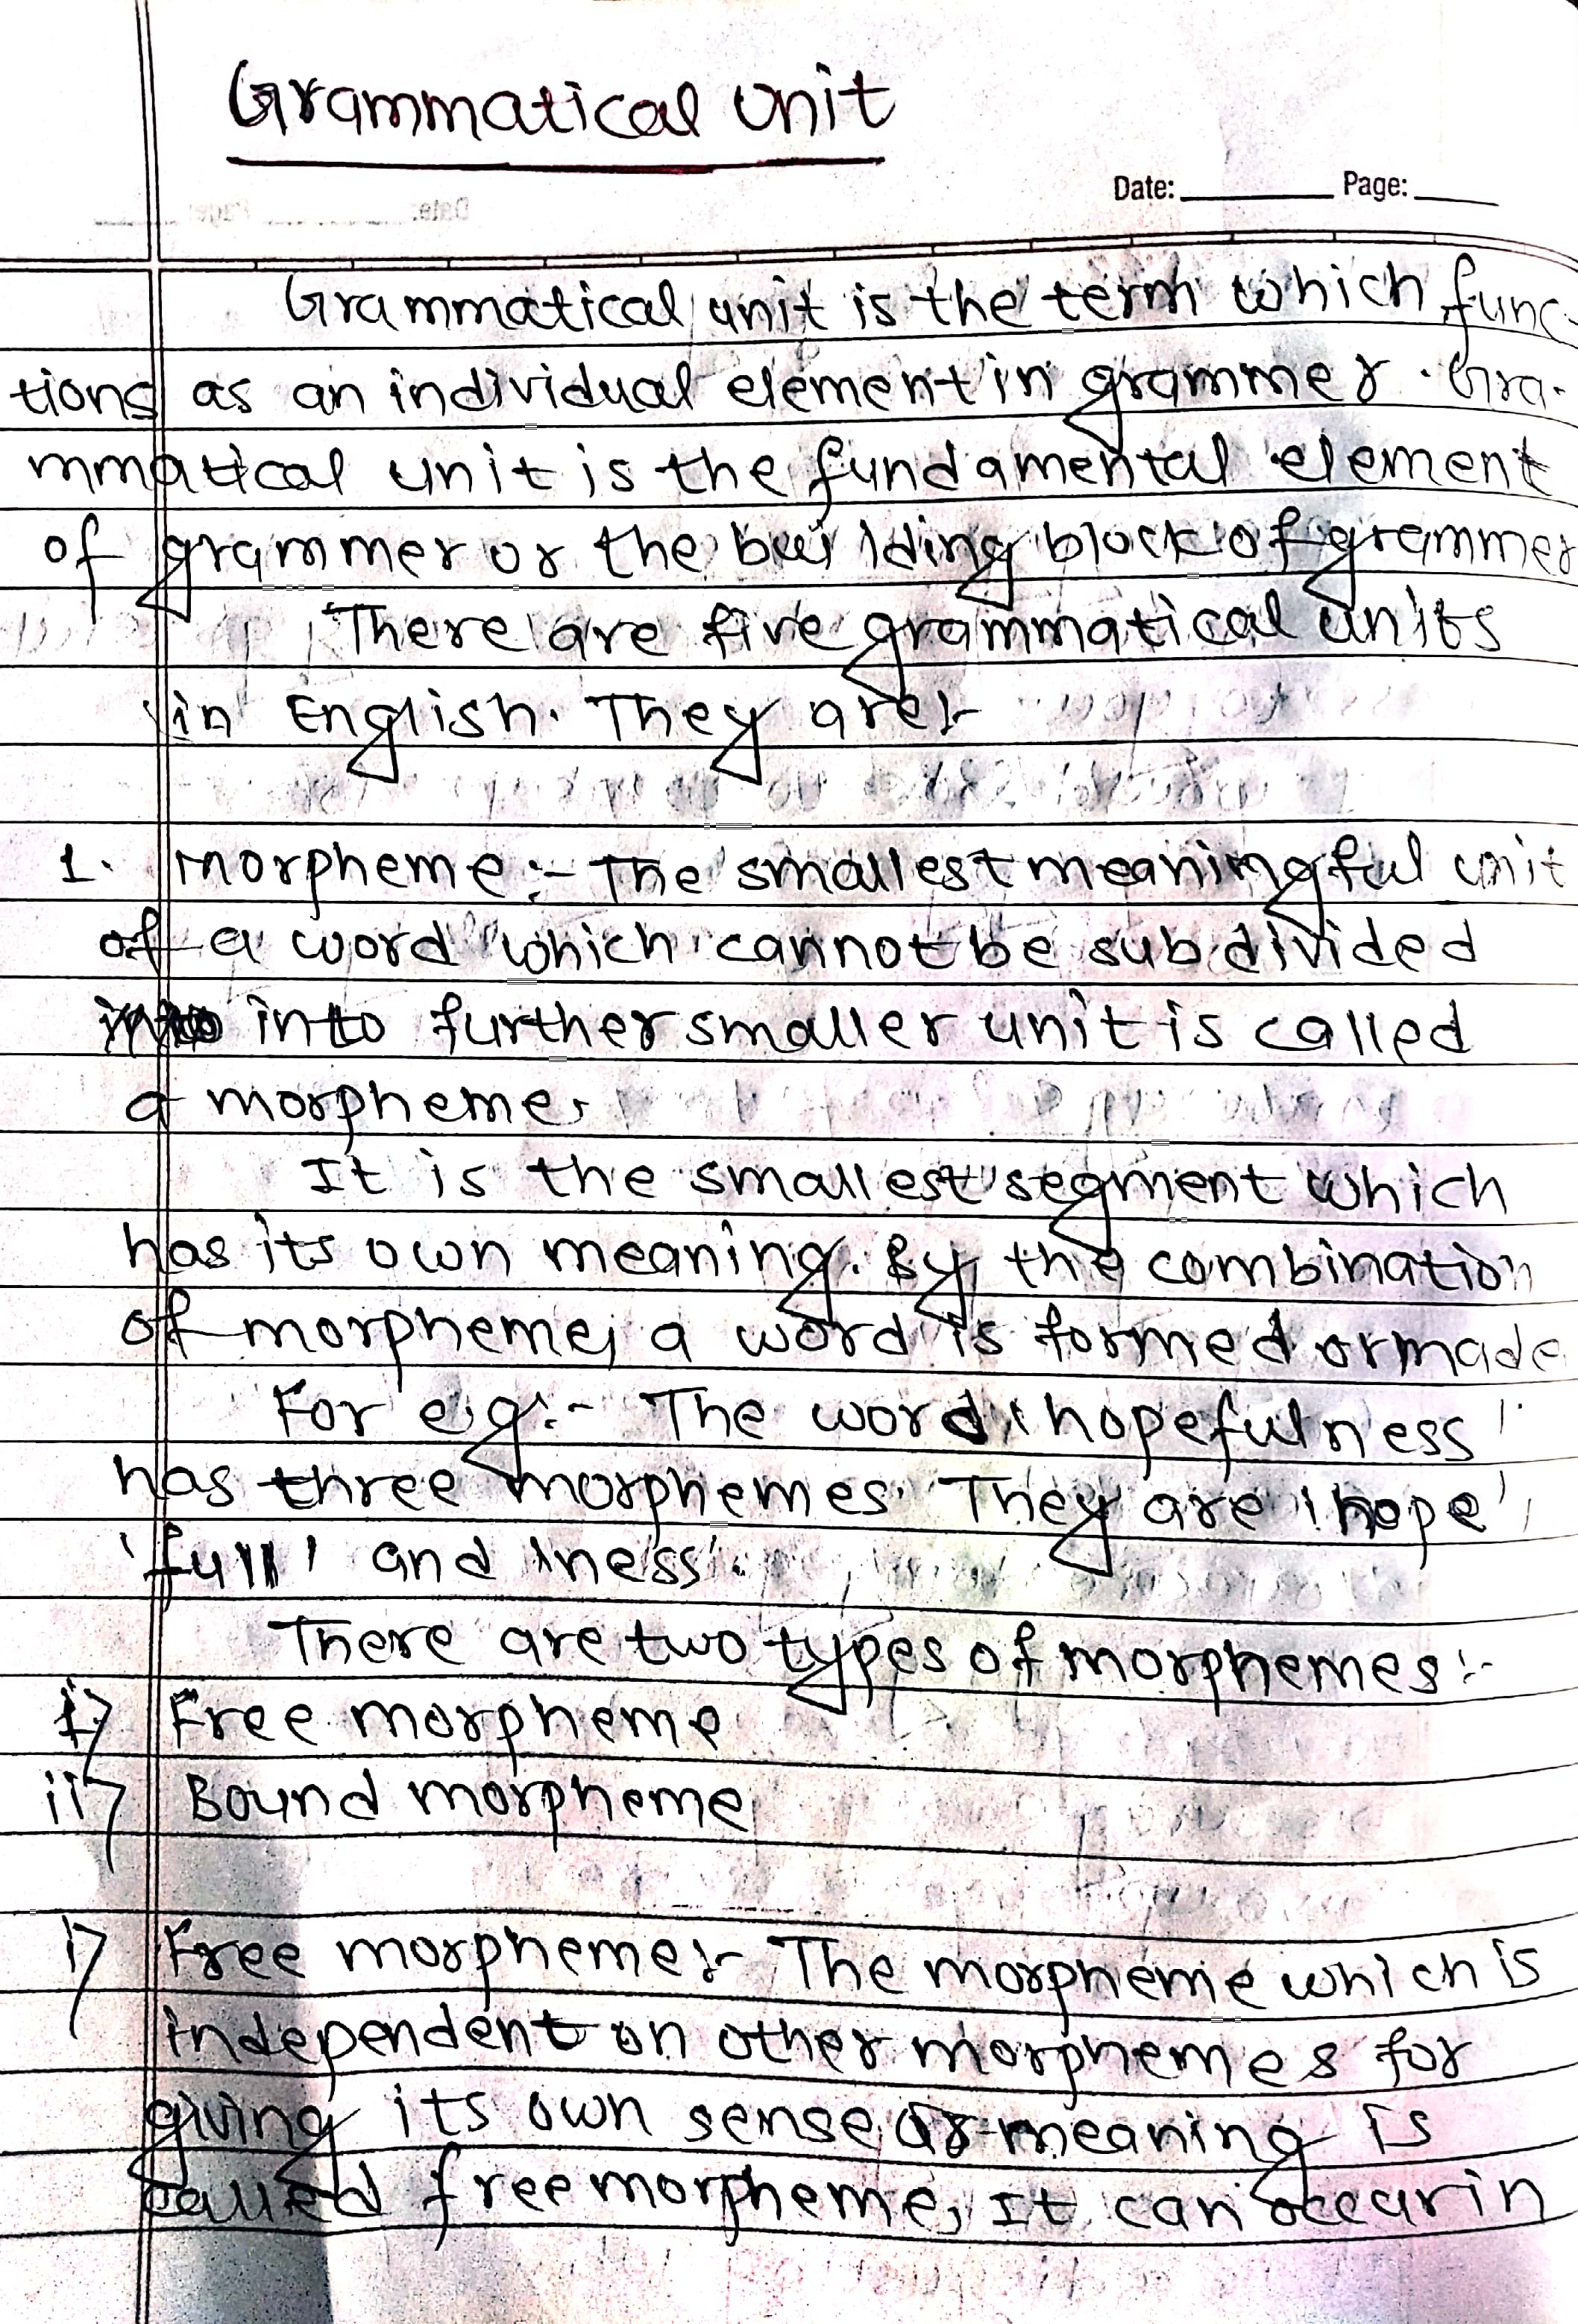 Grammatical unit
Date: Page:
Grammatical unit is the term which func-
tions as an individual element in grammer. Gra-
mmatical unit is the fundamental element
of grammer or the building block of grammer
There are five grammatical units
in English. They are:-
1. Morpheme:- The smallest meaningful unit
of a word which cannot be subdivided
into into further smaller unit is called
a morpheme.
It is the smallest segment which
has its own meaning. By the combination
of morpheme, a word is formed or made
For e.g:- The word 'hopefulness'
has three morphemes. They are 'hope',
'full' and 'ness'.
There are two types of morphemes:-
i> Free morpheme
ii> Bound morpheme
i> Free morpheme:- The morpheme which is
independent on other morphemes for
giving its own sense or meaning is
called free morpheme, It can occur in